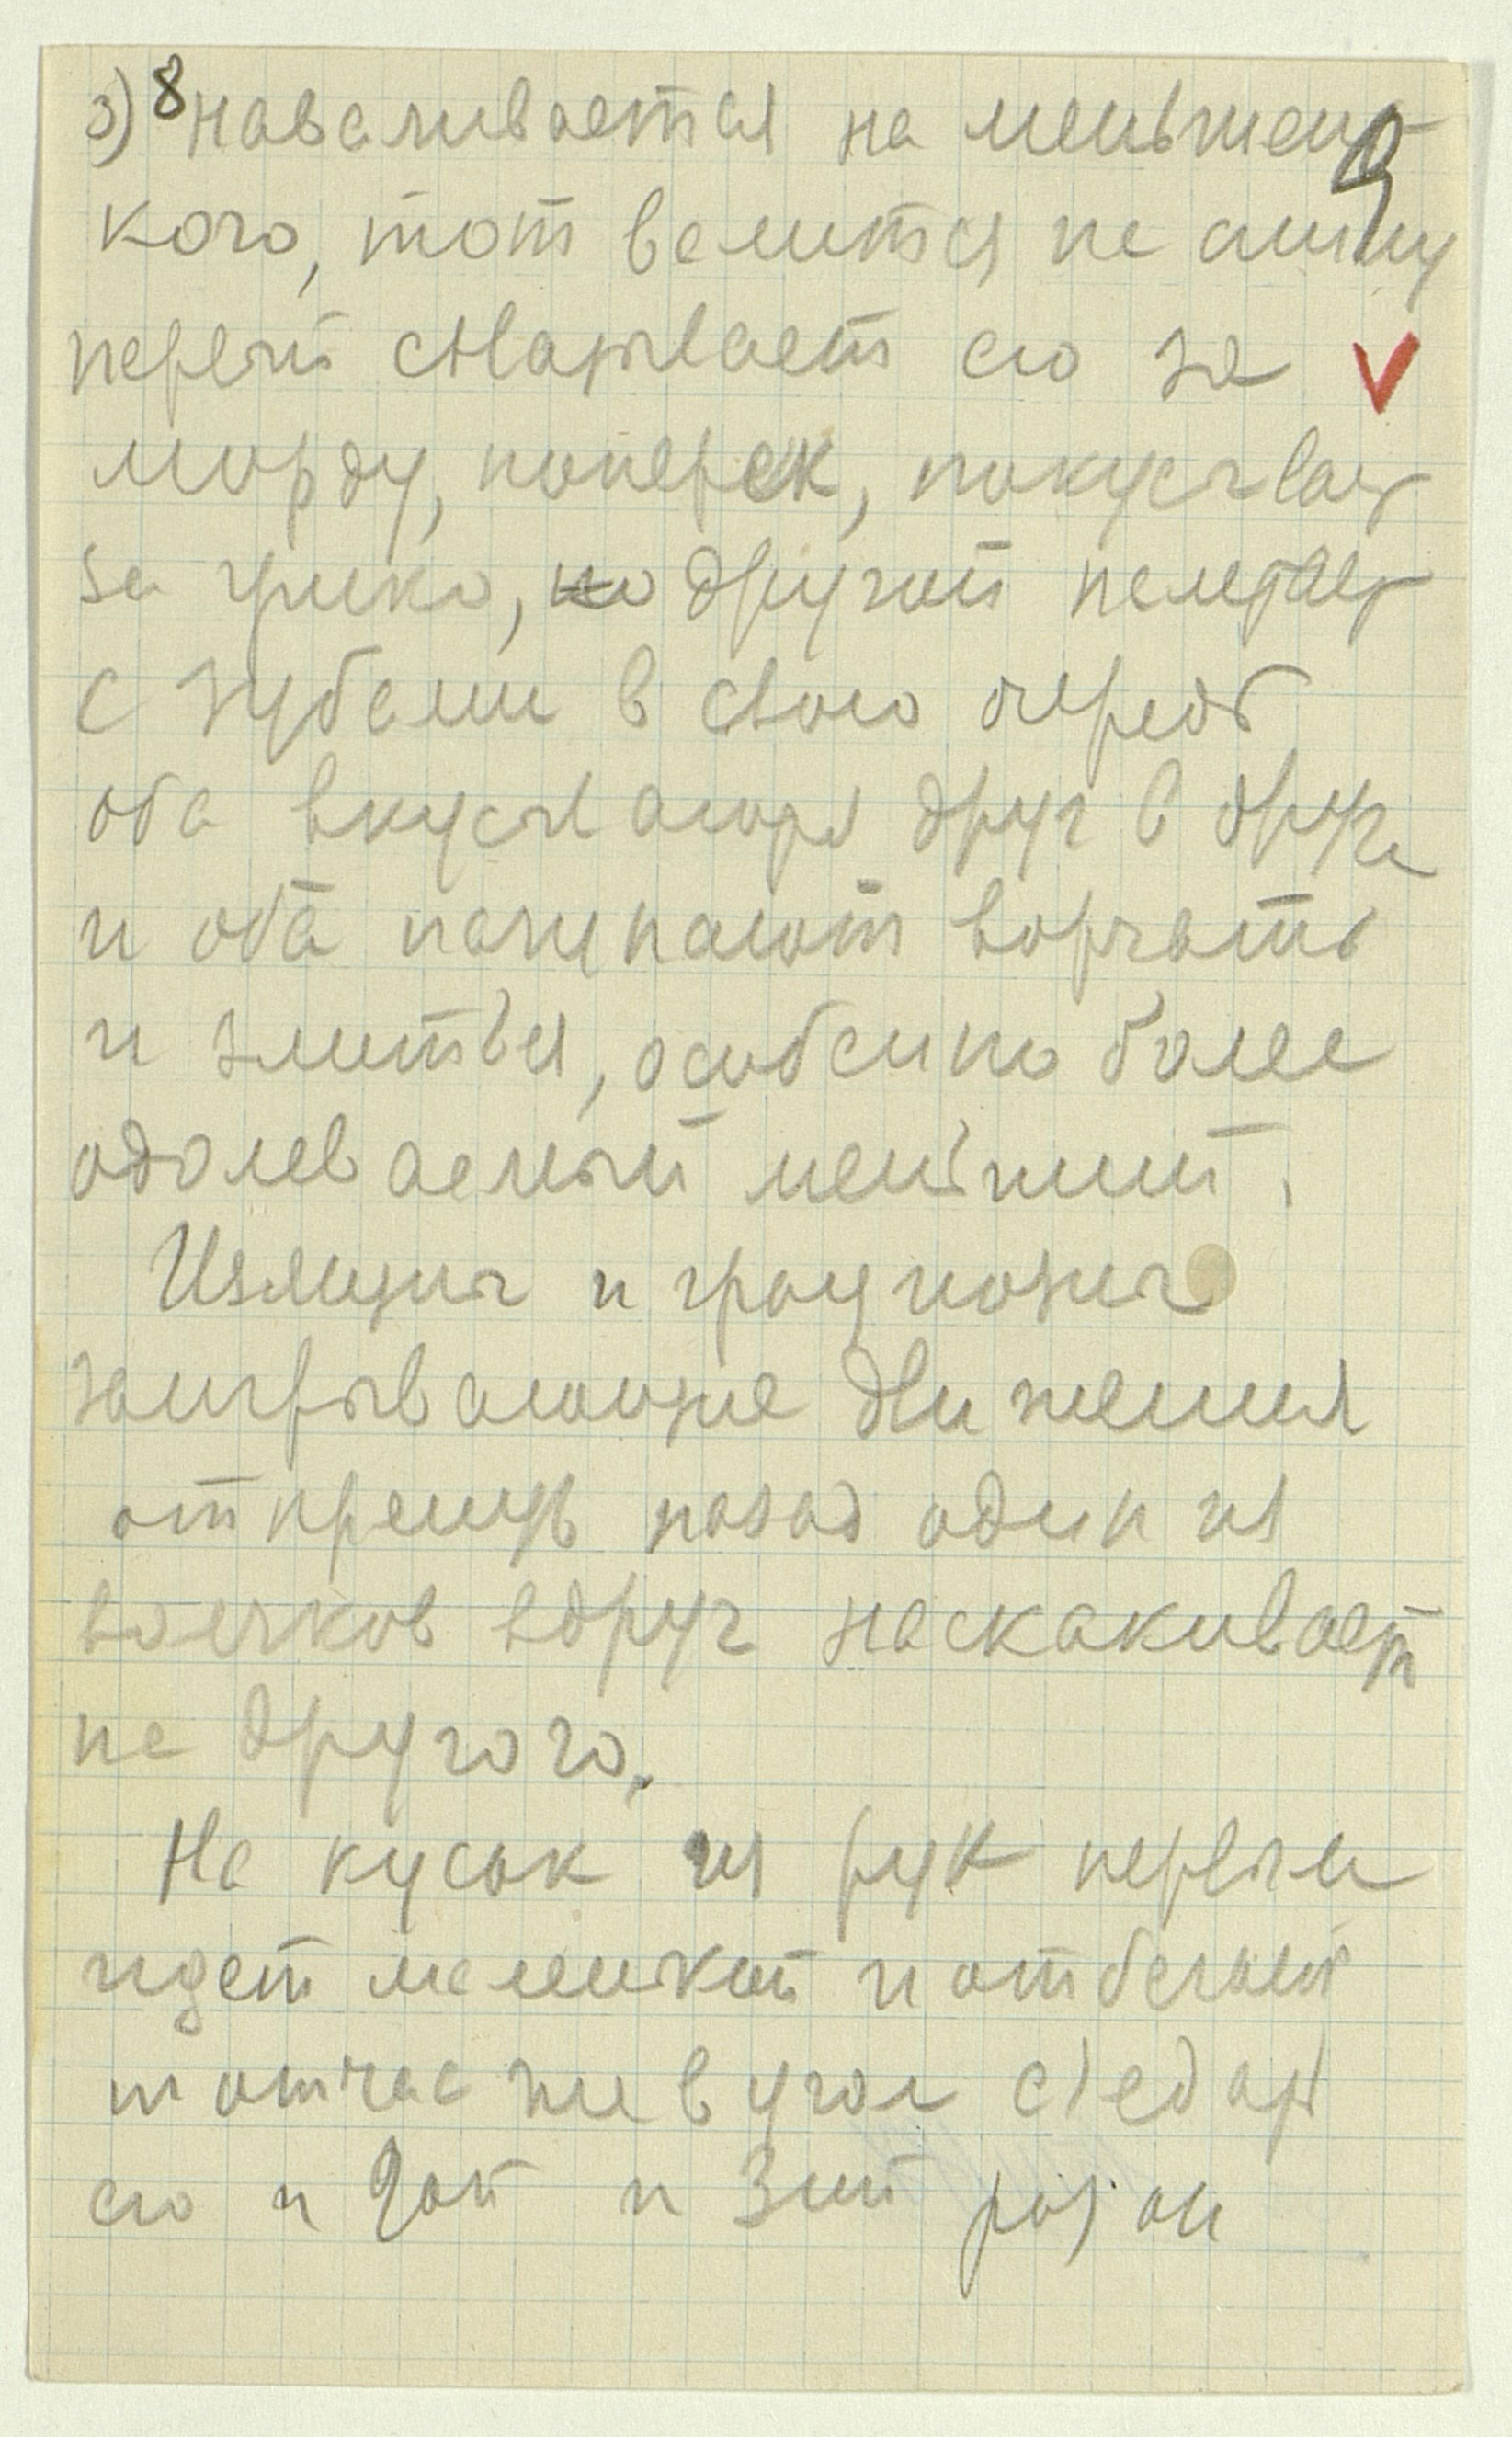 3) 8 наваливается на меньшень-
кого, тот валится на спину
первый схватывает его за
морду, поперек, покусывает
за брюхо, но другой нападает
с зубами в свою очередь
оба вкусываются друг в друга
и оба начинают ворчать
и злиться, особенно более
одолеваемый меньший.
Излишня и грациозны
заигрывающие движения
отпрянув назад один из
волчков вдруг наскакивает
на другого.
На кусок из рук первым
идет маленький и отбегает
тотчас же в угол съедая
его и 2ой и 3ий раз он